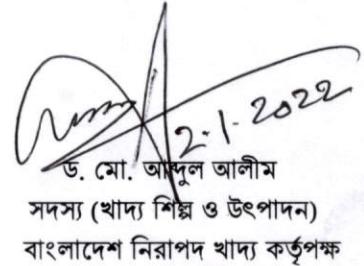 2.1.2022
ড. মো. আব্দুল আলীম
সদস্য (খাদ্য শিল্প ও উৎপাদন)
বাংলাদেশ নিরাপদ খাদ্য কর্তৃপক্ষ